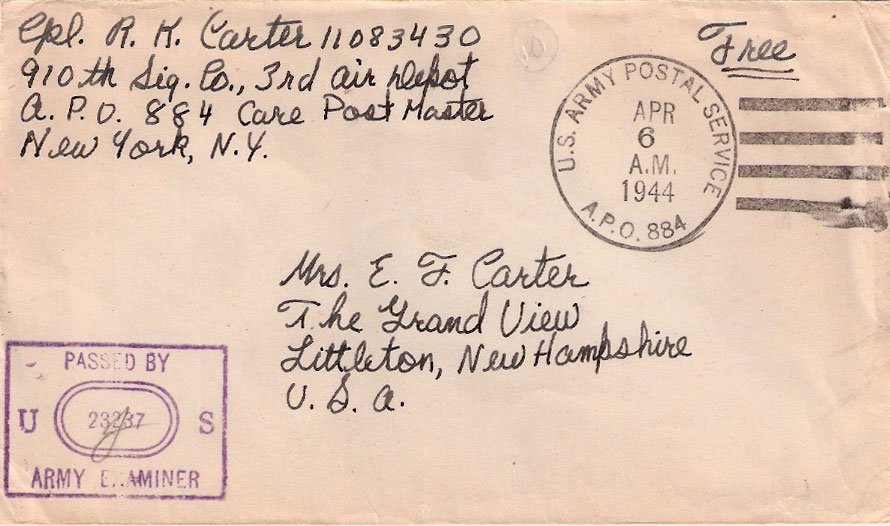 Cpl. R. K. Carter 11083430
910th Sig. Co., 3rd Air Depot
A. P. O. 884 Care Post Master
New York, N.Y.
Free
U.S. ARMY POSTAL SERVICE
APR
6
A.M.
1944
A.P.O. 884
Mrs. E. F. Carter
The Grand View
Littleton, New Hampshire
U. S. A.
PASSED BY
U 23237 S
ARMY EXAMINER